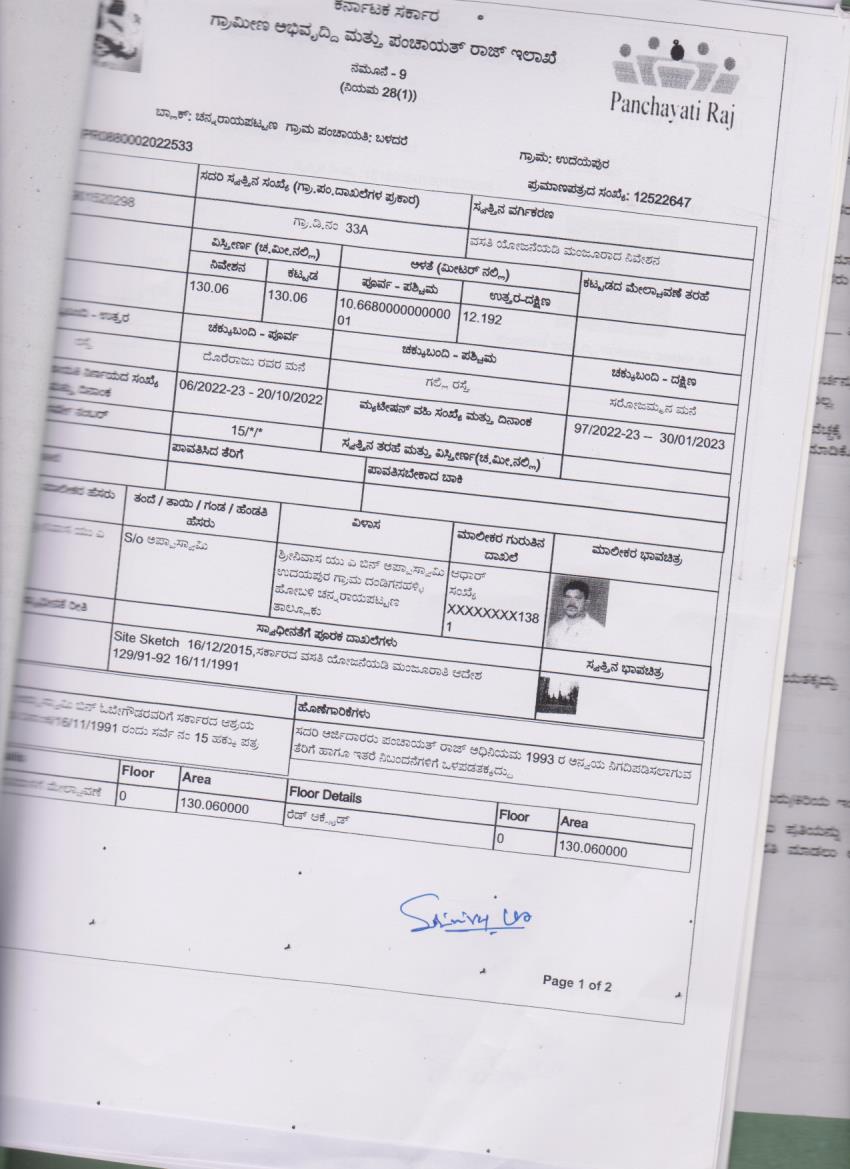 ಕರ್ನಾಟಕ ಸರ್ಕಾರ
ಗ್ರಾಮೀಣ ಅಭಿವೃದ್ದಿ ಮತ್ತು ಪಂಚಾಯತ್ ರಾಜ್ ಇಲಾಖೆ
ನಮೂನೆ - 9
(ನಿಯಮ 28(1))
Panchayati Raj
ಬ್ಲಾಕ್: ಚನ್ನರಾಯಪಟ್ಟಣ ಗ್ರಾಮ ಪಂಚಾಯತಿ: ಬಳದರೆ
ಗ್ರಾಮ: ಉದಯಪುರ
PR0880002022533
ಪ್ರಮಾಣಪತ್ರದ ಸಂಖ್ಯೆ: 12522647
ಸದರಿ ಸ್ವತ್ತಿನ ಸಂಖ್ಯೆ (ಗ್ರಾ.ಪಂ.ದಾಖಲೆಗಳ ಪ್ರಕಾರ)
ಸ್ವತ್ತಿನ ವರ್ಗಿಕರಣ
ಗ್ರಾ.ಡಿ.ನಂ 33A
ವಸತಿ ಯೋಜನೆಯಡಿ ಮಂಜೂರಾದ ನಿವೇಶನ
ವಿಸ್ತೀರ್ಣ (ಚ.ಮೀ.ನಲ್ಲಿ)
ಅಳತೆ (ಮೀಟರ್ ನಲ್ಲಿ)
ಕಟ್ಟಡದ ಮೇಲ್ಚಾವಣೆ ತರಹೆ
ನಿವೇಶನ
ಕಟ್ಟಡ
ಪೂರ್ವ - ಪಶ್ಚಿಮ
ಉತ್ತರ-ದಕ್ಷಿಣ
130.06
130.06
10.6680000000000
01
12.192
- ಉತ್ತರ
ಚಕ್ಕುಬಂದಿ - ಪೂರ್ವ
ಚಕ್ಕುಬಂದಿ - ಪಶ್ಚಿಮ
ಚಕ್ಕುಬಂದಿ - ದಕ್ಷಿಣ
ರಸ್ತೆ
ದೊರೆರಾಜು ರವರ ಮನೆ
ಗಲ್ಲಿ ರಸ್ತೆ
ಸರೋಜಮ್ಮನ ಮನೆ
ನಿರ್ಣಯದ ಸಂಖ್ಯೆ
ಮತ್ತು ದಿನಾಂಕ
06/2022-23 - 20/10/2022
ಮ್ಯುಟೇಷನ್ ವಹಿ ಸಂಖ್ಯೆ ಮತ್ತು ದಿನಾಂಕ
97/2022-23 – 30/01/2023
ನಂಬರ್
15/*/*
ಸ್ವತ್ತಿನ ತರಹೆ ಮತ್ತು ವಿಸ್ತೀರ್ಣ(ಚ.ಮೀ.ನಲ್ಲಿ)
ಪಾವತಿಸಿದ ತೆರಿಗೆ
ಪಾವತಿಸಬೇಕಾದ ಬಾಕಿ
ಮಾಲೀಕರ ಹೆಸರು
ತಂದೆ / ತಾಯಿ / ಗಂಡ / ಹೆಂಡತಿ
ಹೆಸರು
ವಿಳಾಸ
ಮಾಲೀಕರ ಗುರುತಿನ
ದಾಖಲೆ
ಮಾಲೀಕರ ಭಾವಚಿತ್ರ
ಯು ಎ
S/o ಅಪ್ಪಾಸ್ವಾಮಿ
ಶ್ರೀನಿವಾಸ ಯು ಎ ಬಿನ್ ಅಪ್ಪಾಸ್ವಾಮಿ
ಉದಯಪುರ ಗ್ರಾಮ ದಂಡಿಗನಹಳ್ಳಿ
ಹೋಬಳಿ ಚನ್ನರಾಯಪಟ್ಟಣ
ತಾಲ್ಲೂಕು
ಆಧಾರ್
ಸಂಖ್ಯೆ
XXXXXXXX138
1
ರೀತಿ
ಸ್ವಾಧೀನತೆಗೆ ಪೂರಕ ದಾಖಲೆಗಳು
ಸ್ವತ್ತಿನ ಭಾವಚಿತ್ರ
Site Sketch 16/12/2015,ಸರ್ಕಾರದ ವಸತಿ ಯೋಜನೆಯಡಿ ಮಂಜೂರಾತಿ ಆದೇಶ
129/91-92 16/11/1991
ಹೊಣೆಗಾರಿಕೆಗಳು
ಬಿನ್ ಓಬೇಗೌಡರವರಿಗೆ ಸರ್ಕಾರದ ಆಶ್ರಯ
16/11/1991 ರಂದು ಸರ್ವೆ ನಂ 15 ಹಕ್ಕು ಪತ್ರ
ಸದರಿ ಅರ್ಜಿದಾರರು ಪಂಚಾಯತ್ ರಾಜ್ ಅಧಿನಿಯಮ 1993 ರ ಅನ್ವಯ ನಿಗದಿಪಡಿಸಲಾಗುವ
ತೆರಿಗೆ ಹಾಗೂ ಇತರೆ ನಿಬಂದನೆಗಳಿಗೆ ಒಳಪಡತಕ್ಕದ್ದು
Floor
Area
Floor Details
Floor
Area
ಮೇಲ್ಚಾವಣೆ
0
130.060000
ರೆಡ್ ಆಕ್ಸೈಡ್
0
130.060000
Page 1 of 2